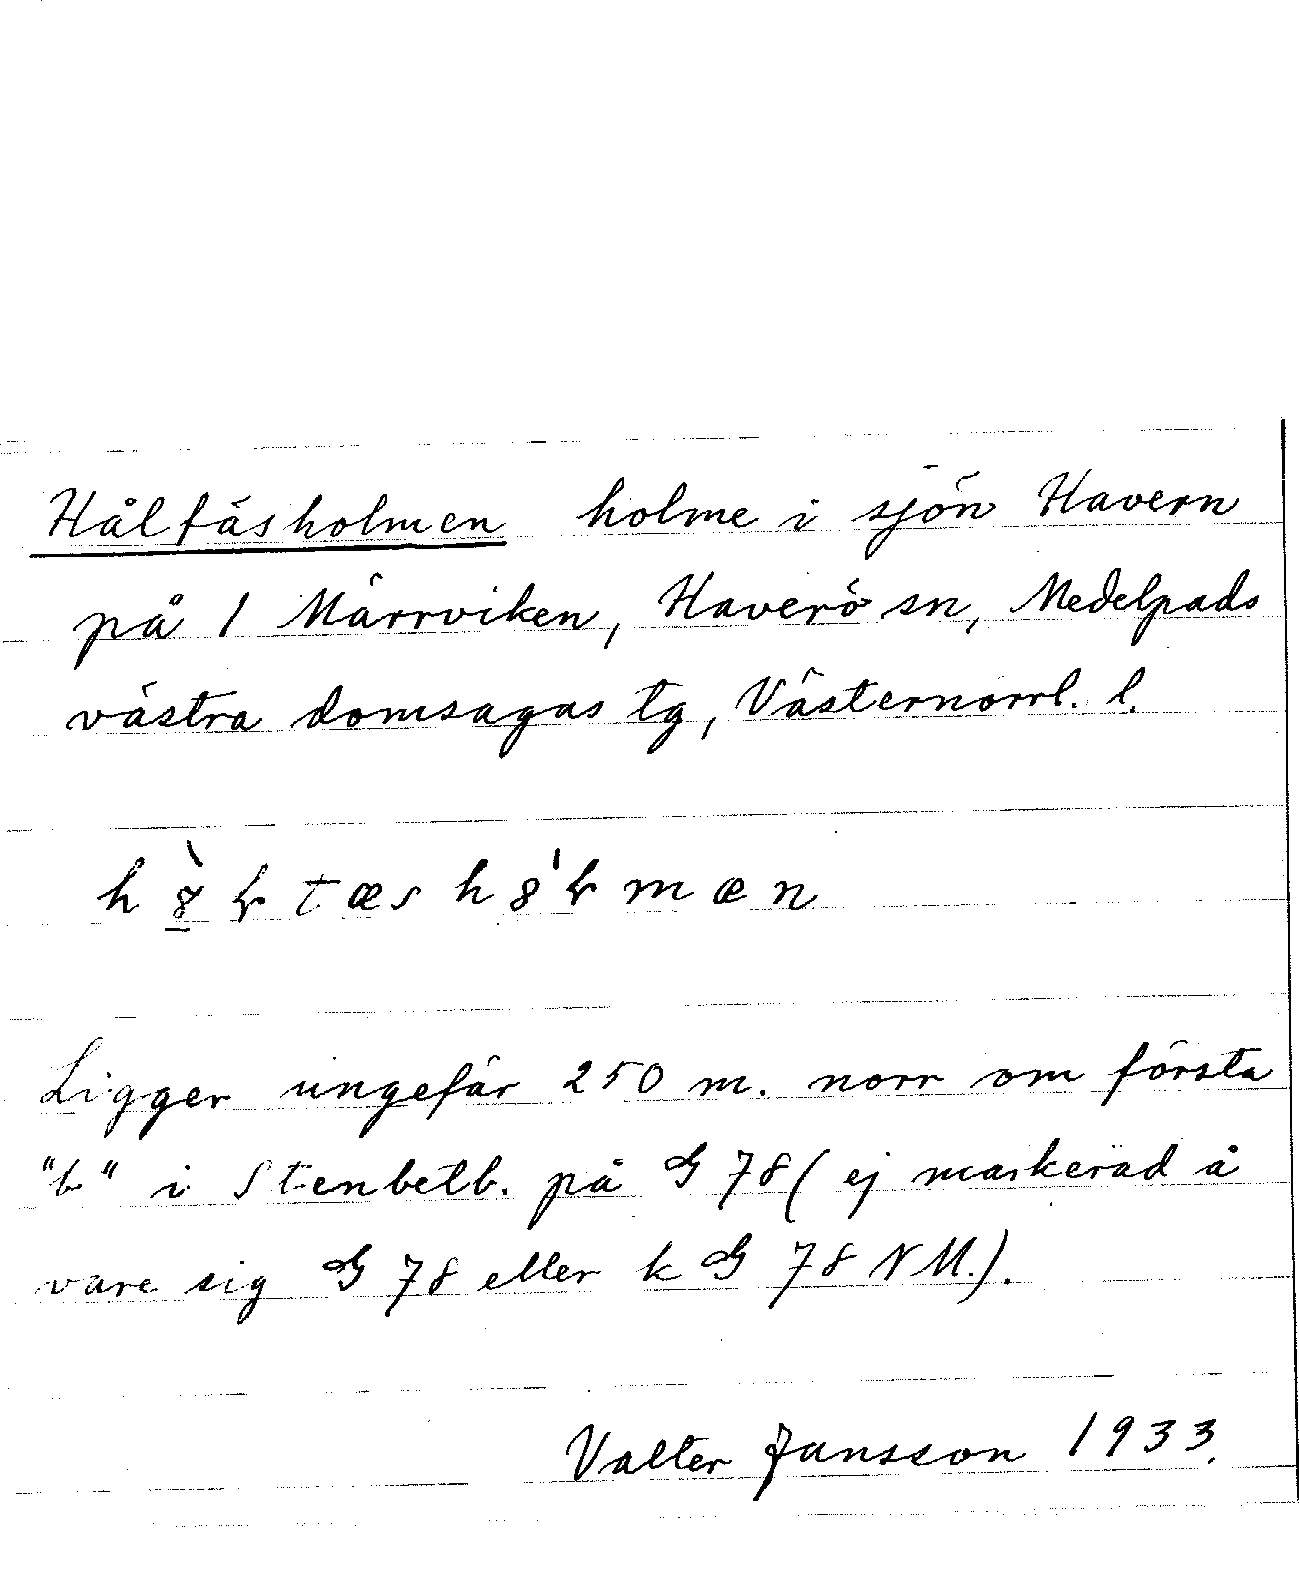 Håltäsholmen holme i sjön Havern
på 1 Märrviken, Haverö sn, Medelpads
västra domsagas tg, Västernorrl. l.
Ligger ungefär 250 m. norr om första
"b" i Stenbetb. på G 78 ( ej markerad å
vare sig G 78 eller k G 78 NM.).
Valter Jansson 1933.